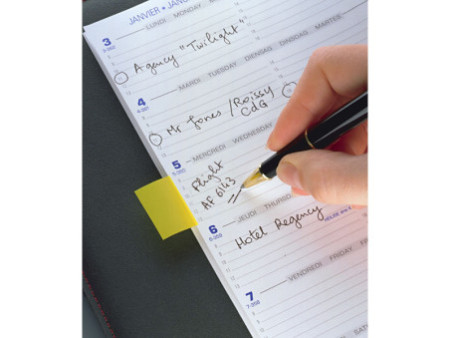 JANVIER - JAN
3
LUNDI MONDAY
Agency "Twilight"
4
MARDI TUESDAY DIENSTAG DINSDAG MARTES
Mr Jones / Roissy
CdG
5
MERCREDI WEDNESDAY
Flight
AF 6143
6
JEUDI THURSD
Hotel Regency
7
VENDREDI FRIDAY